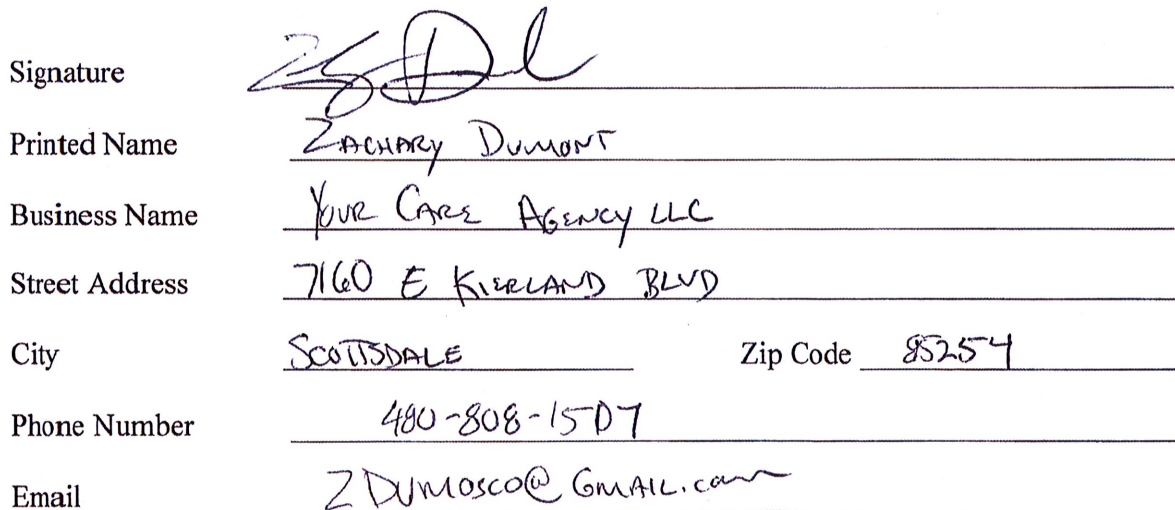 Signature
Printed Name ZACHARY DUMONT
Business Name YOUR CARE AGENCY LLC
Street Address 7160 E KIERLAND BLVD
City SCOTTSDALE Zip Code 85254
Phone Number 480-808-1507
Email ZDUMOSCO@GMAIL.com